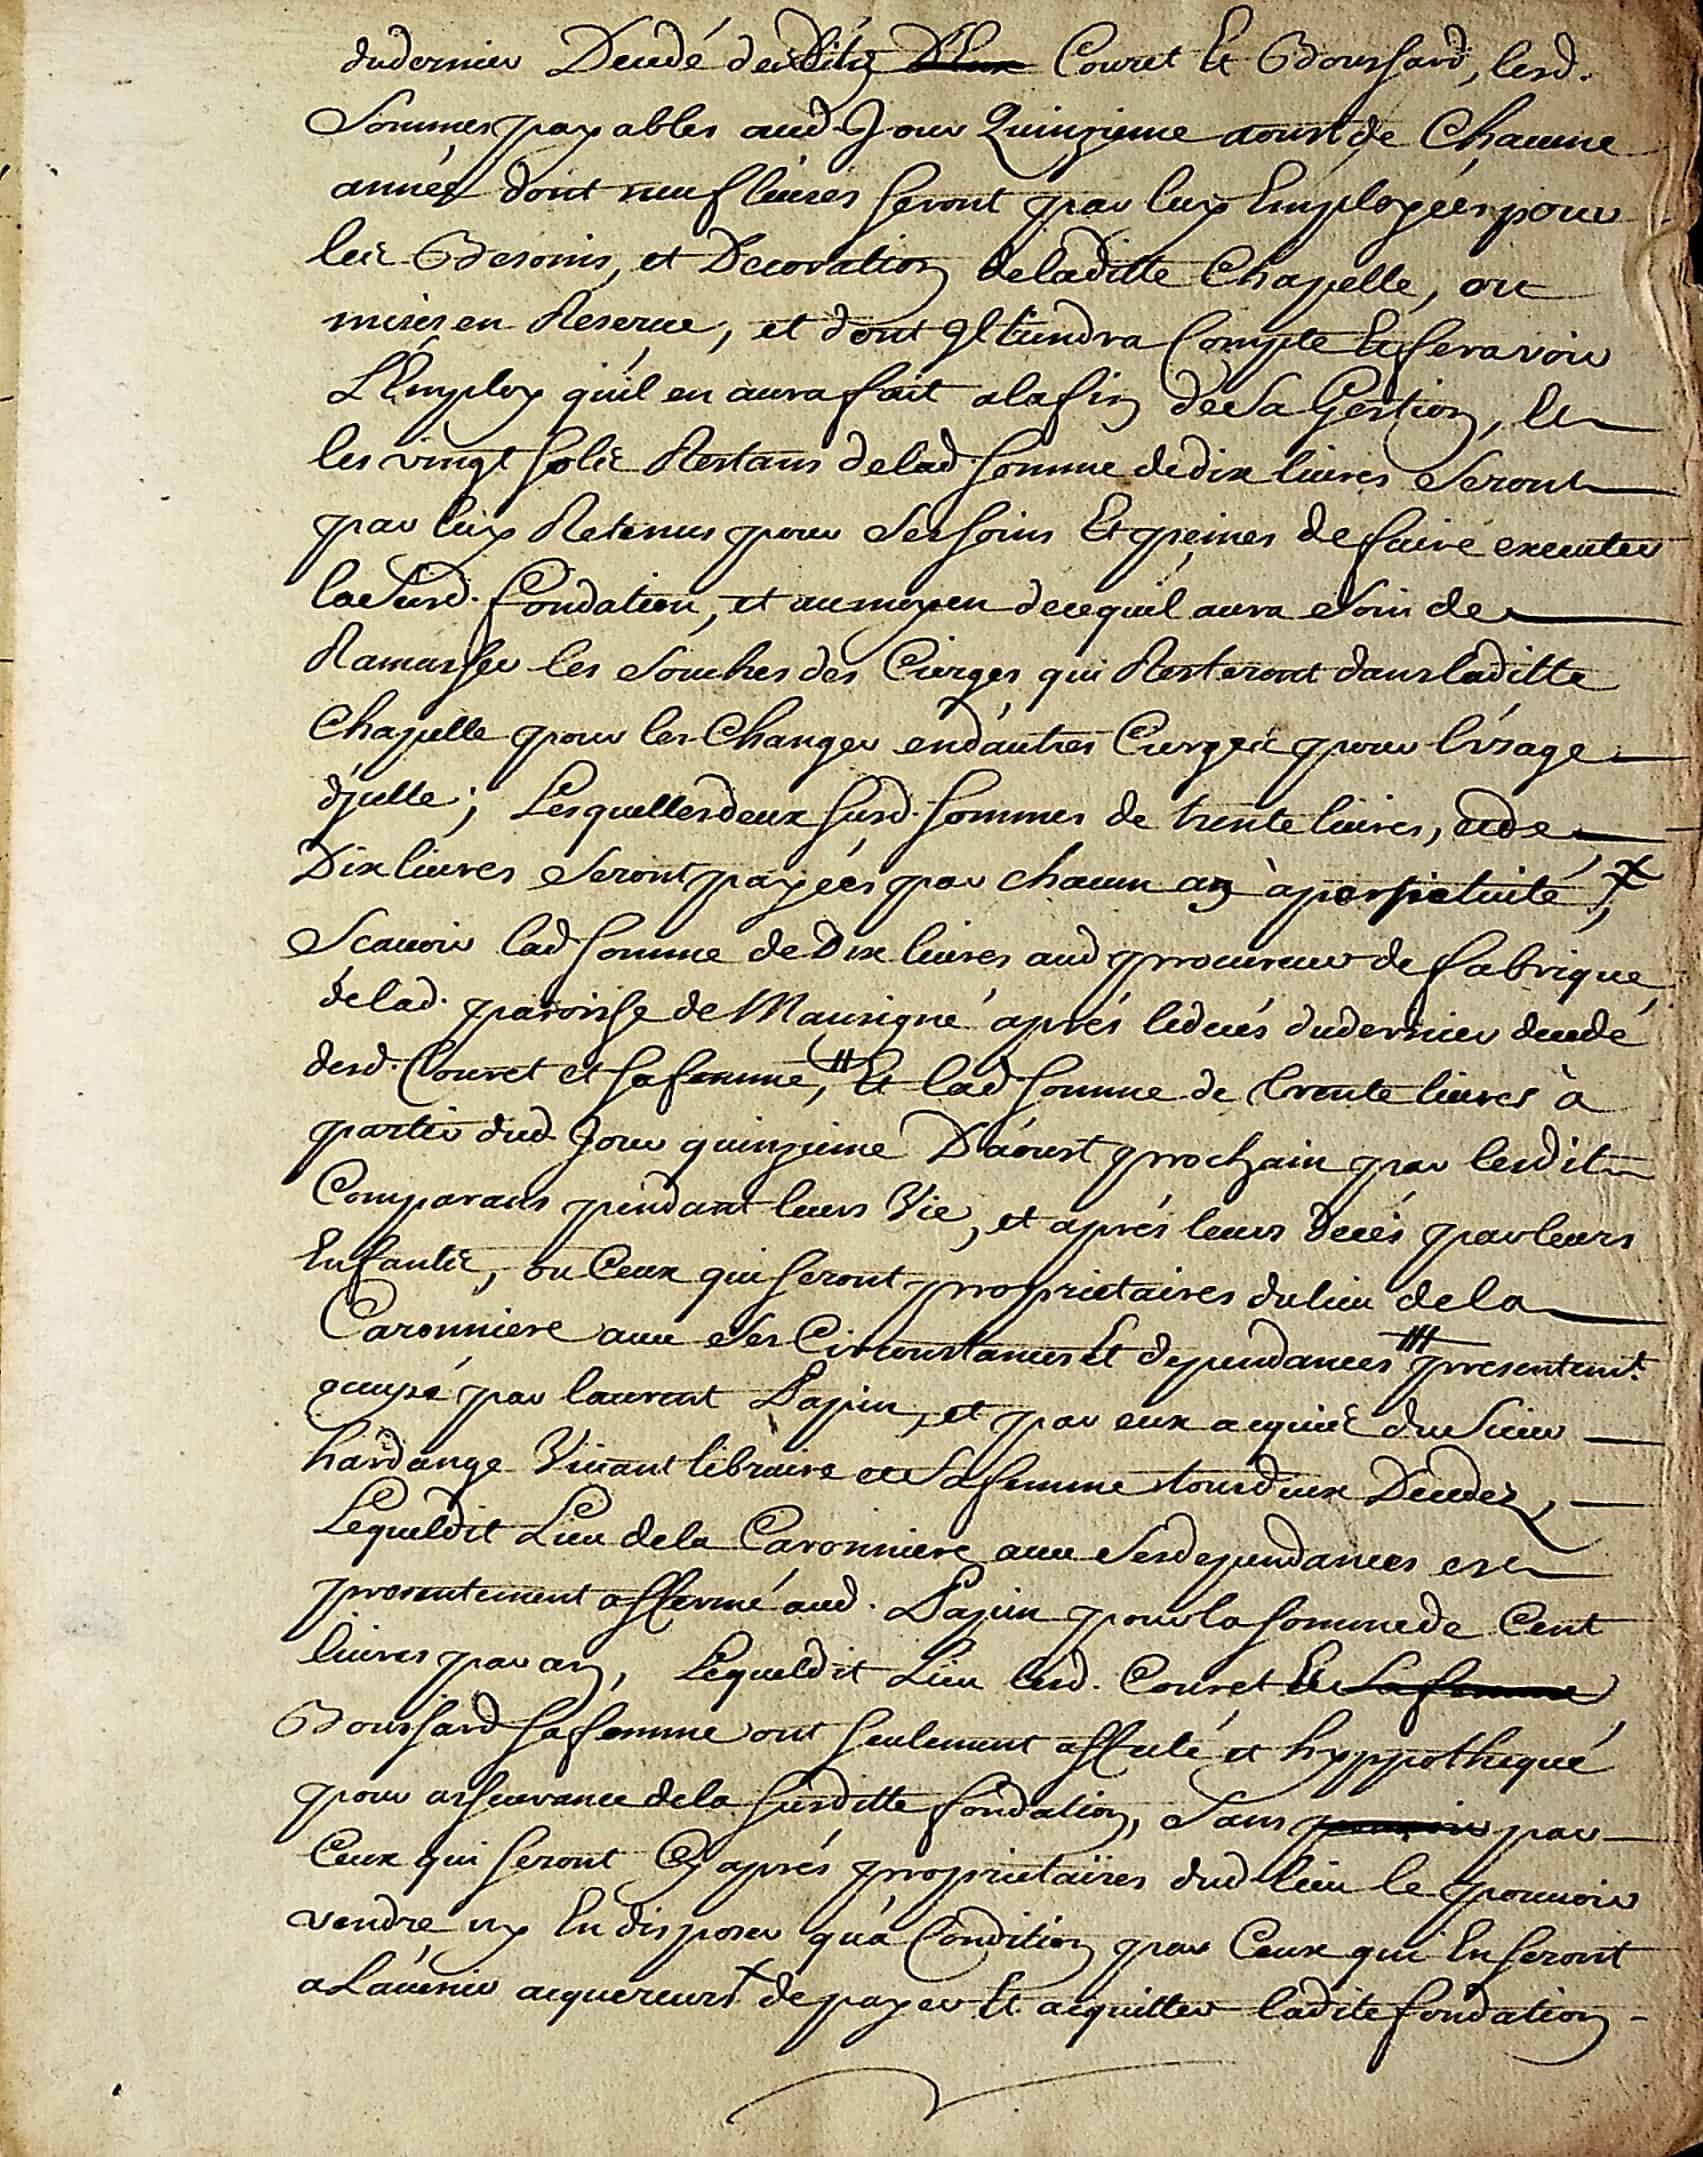 dudernier Decedé desdits D'Eux Couret Et Boussard, lesd.
Sommes payables aud. Jour Quinzieme aoust de Chacune
année dont neuf livres seront par luy Employées pour
les Besoins, et Decoration deladitte Chapelle, ou
mises en Reserve, et dont Il tiendra Compte Et fera voir
L'Employ qu'il en aura fait alafin de Sa Gestion, Et
les vingt sols Restans delad. somme dedix livres Seront
par luy Retenus pour Ses soins Et peines de faire executer
laSusd. fondation, et aumoyen decequil aura Soin de
Ramasser les Souches des Cierges qui Resteront dansladitte
Chapelle pour les Changer end'autres Cierges pour l'usage
d'jcelle; Lesquelles deux susd. sommes de trente livres, et de
Dix livres Seront payées par chacun an à perpetuité, X
Scavoir lad. somme de Dix livres aud. procureur de fabrique
delad. paroisse de Mansigné aprés ledecés dudernier decedé
desd. Couret et sa femme, # Et lad. somme de trente livres à
partir dud. Jour quinzieme D'aoust prochain par lesdits
Comparans pendant leurs Vie, et aprés leurs decés par leurs
Enfants, ou Ceux qui seront proprietaires du lieu de la
Caronniere avec Ses Circonstances Et dependances # presentemt.
occupé par laurent Papin, et par eux acquis du Sieur
hardange Vivant libraire et Sa femme tous deux Decedez,
Lequeldit Lieu dela Caronniere avec Ses dependances est
presentement affermé aud. Papin pour la somme de Cent
livres par an, Lequeldit Lieu lesd. Couret Et Sa femme
Boussard sa femme ont seulement affecté et hyppothequé
pour assurance dela susditte fondation, Sans pouvoir par
Ceux qui seront Cy aprés proprietaires dud. lieu le pouvoir
vendre ny En disposer qu'à Condition par Ceux qui En seront
a L'avenir acquereurs X de payer Et acquitter ladite fondation